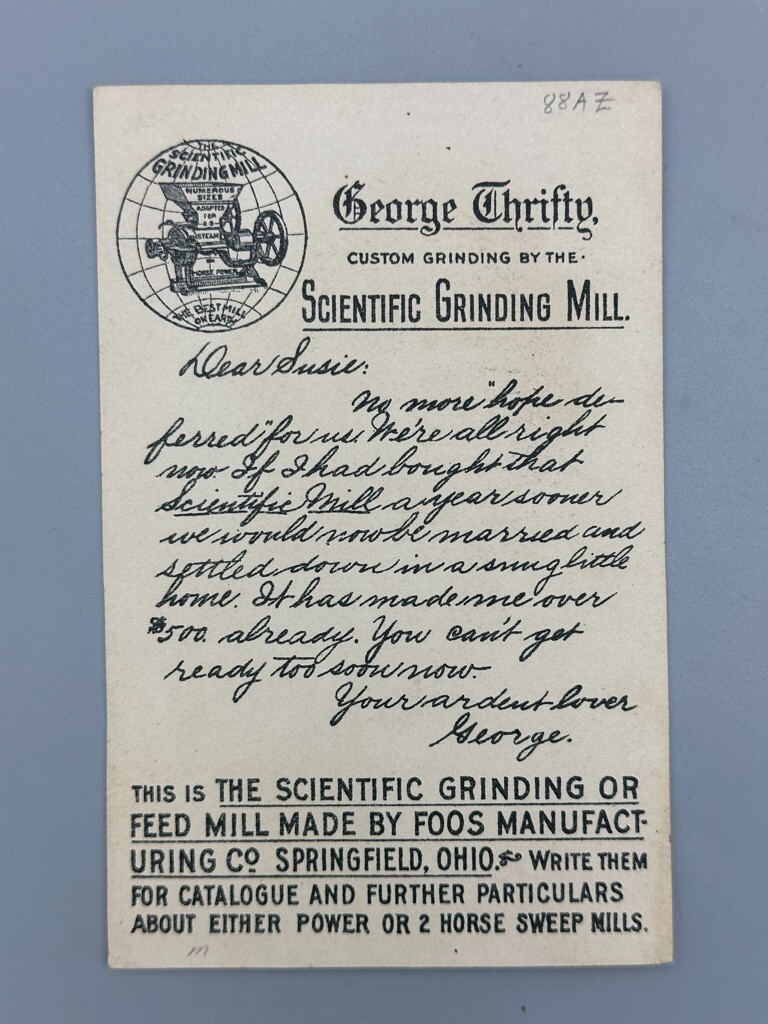 88AZ
THE
SCIENTIFIC
GRINDING MILL
NUMEROUS
SIZES
ADAPTED
FOR
STEAM
HORSE POWER
THE BEST MILL
ON EARTH
George Thrifty,
CUSTOM GRINDING BY THE
SCIENTIFIC GRINDING MILL.
Dear Susie:
No more "hope de-
ferred" for us. We're all right
now. If I had bought that
Scientific Mill a year sooner
we would now be married and
settled down in a snug little
home. It has made me over
$500. already. You can't get
ready too soon now.
Your ardent lover
George.
THIS IS THE SCIENTIFIC GRINDING OR
FEED MILL MADE BY FOOS MANUFACT-
URING CO SPRINGFIELD, OHIO. WRITE THEM
FOR CATALOGUE AND FURTHER PARTICULARS
ABOUT EITHER POWER OR 2 HORSE SWEEP MILLS.
m